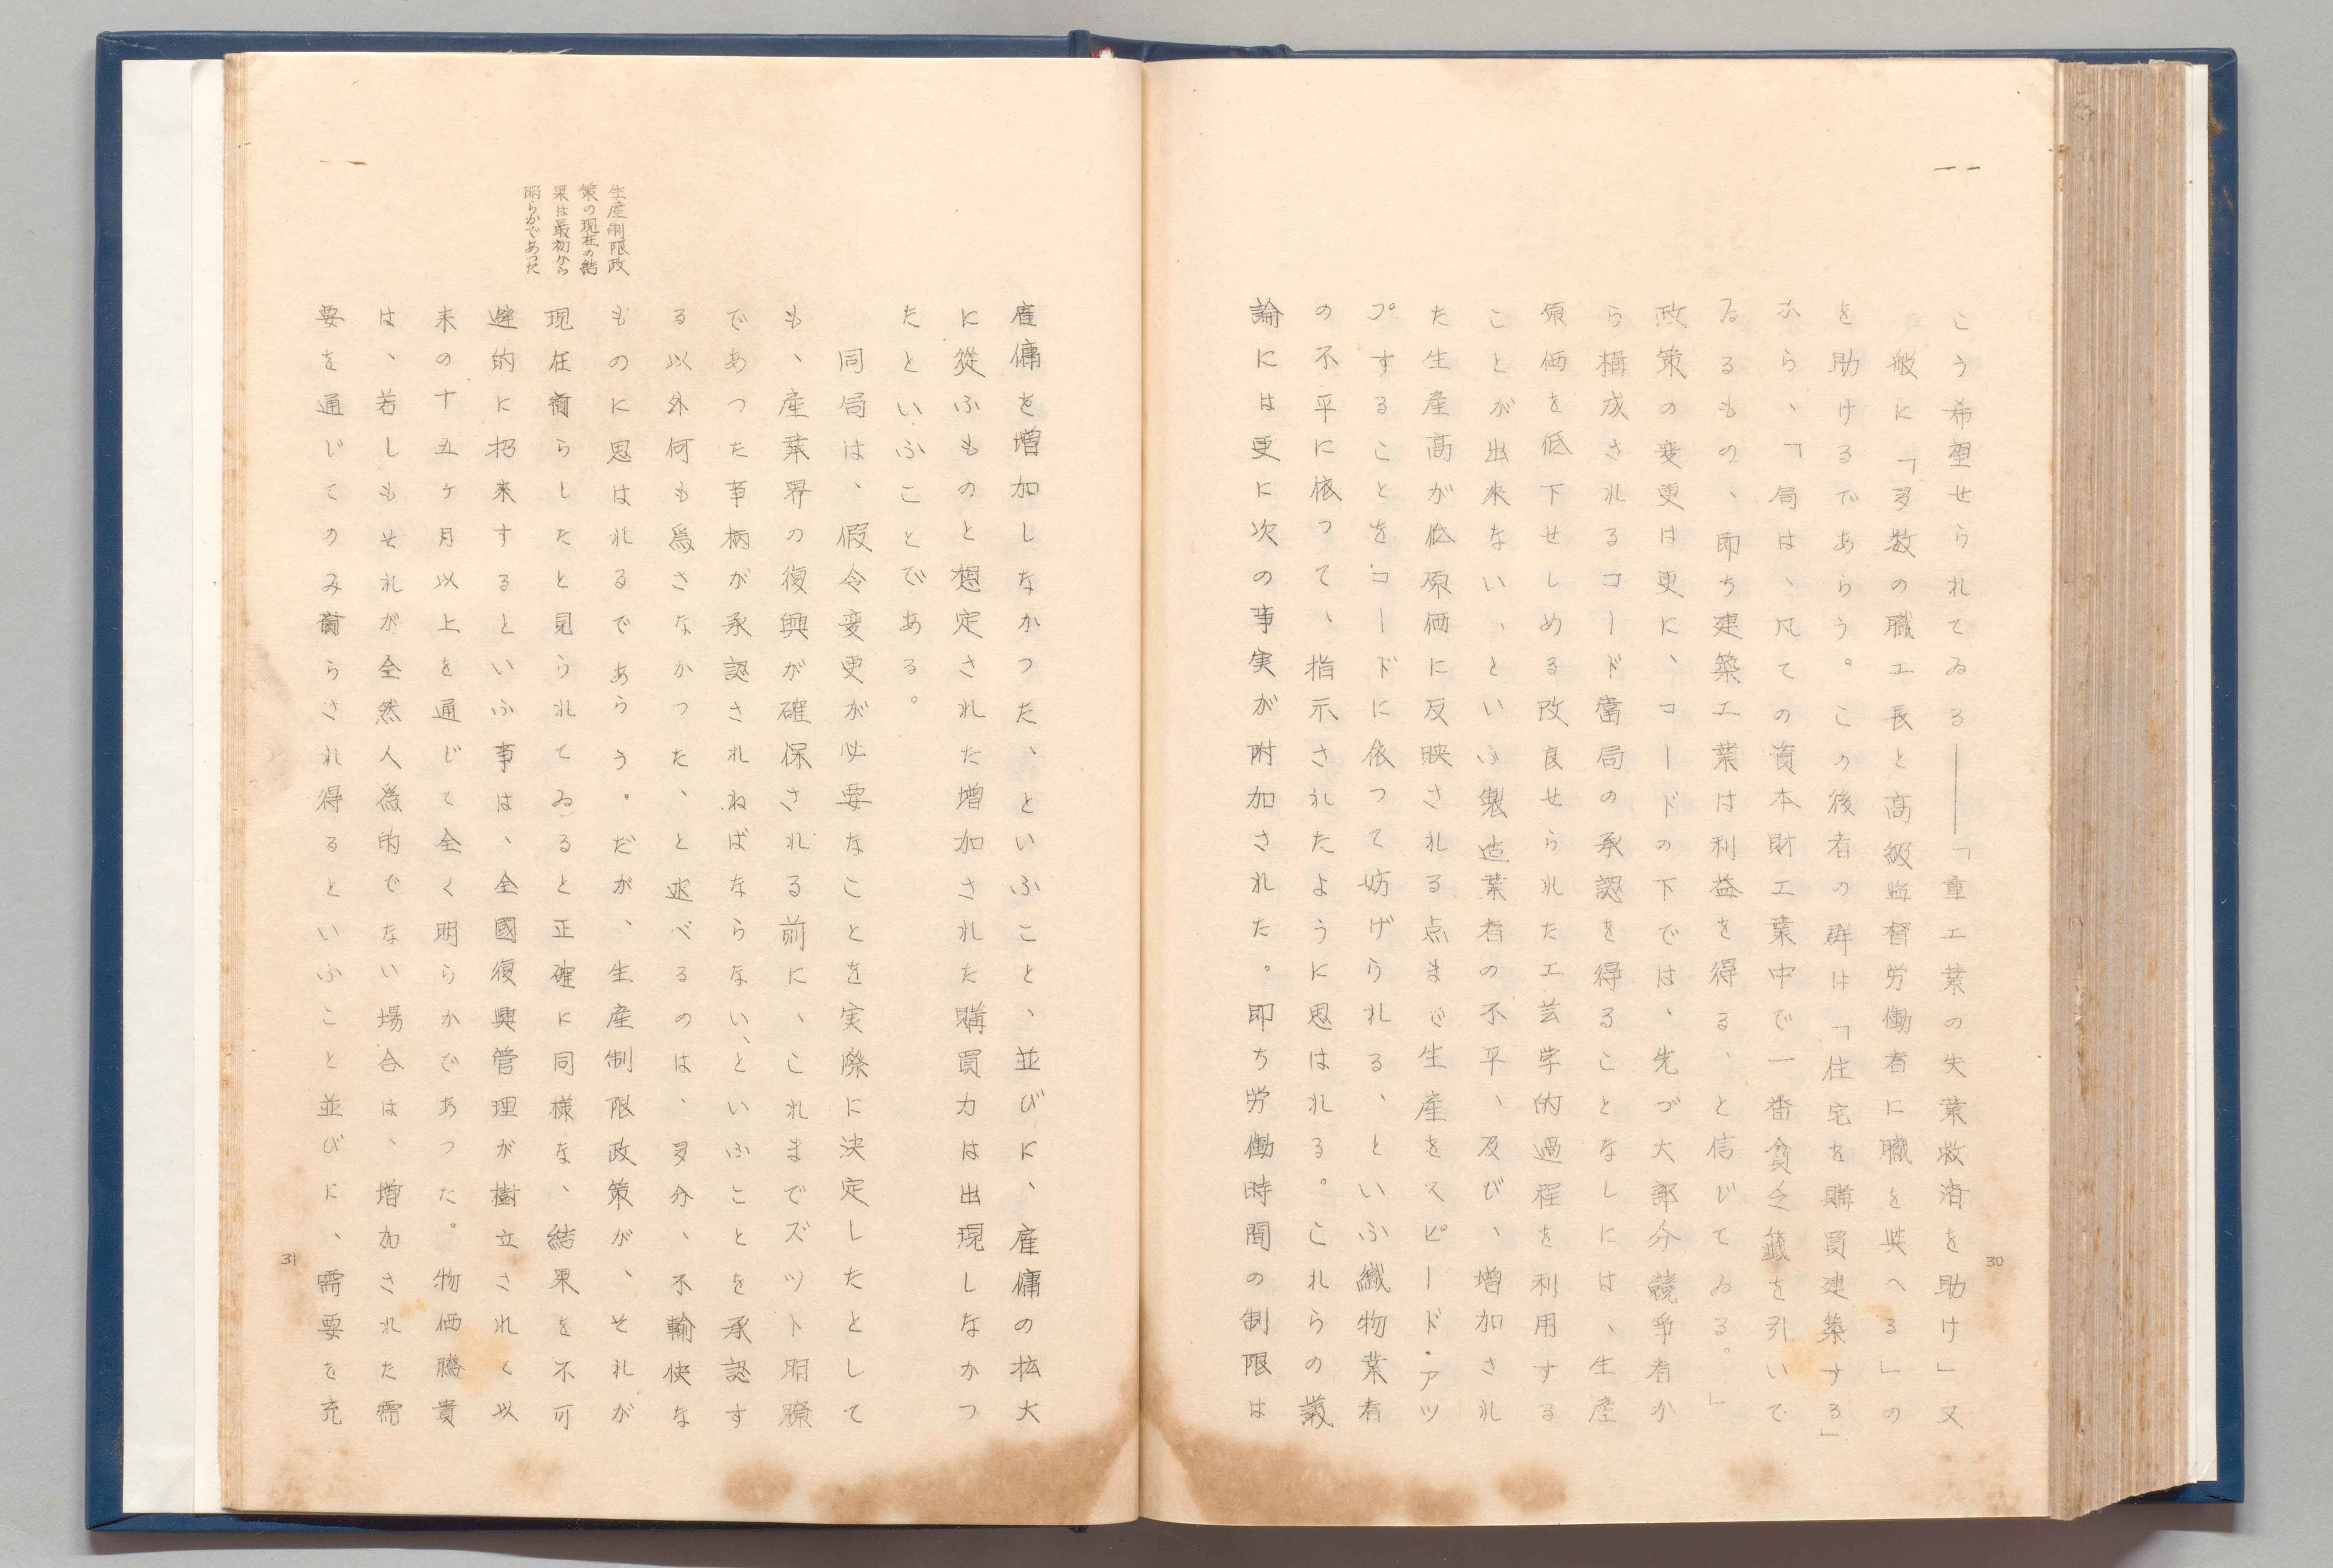 こう希望せられてゐる――「重工業の失業救済を助け」又
一般に「多数の職工長と高級監督労働者に職を與へる」の
を助けるであらう。この後者の群は「住宅を購買建築する」
から、「局は、凡ての資本財工業中で一番貧乏籤を引いで
ゐるもの、即ち建築工業は利益を得る、と信じてゐる。」
政策の変更は更に、コードの下では、先づ大部分競争者か
ら構成されるコード當局の承認を得ることなしには、生産
原価を低下せしめる改良せられた工芸学的過程を利用する
ことが出來ない、といふ製造業者の不平、及び、増加され
た生産高が低原価に反映される点まで生産をスピード・アツ
プすることをコードに依つて妨げられる、といふ纖物業者
の不平に依って、指示されたように思はれる。これらの議
論には更に次の事実が附加された。即ち労働時間の制限は
30
雇傭を増加しなかつた、といふこと、並びに、雇傭の拡大
に從ふものと想定された増加された購買力は出現しなかつ
たといふことである。
同局は、假令変更が必要なことを実際に決定したとして
も、産業界の復興が確保される前に、これまでズツト明瞭
であつた事柄が承認されねばならない、といふことを承認す
る以外何も爲さなかつた、と述べるのは、多分、不輸快な
ものに思はれるであらう。だが、生産制限政策が、それが
現在齎らしたと見られてゐると正確に同様な、結果を不可
避的に招來するといふ事は、全國復興管理が樹立されく以
来の十五ヶ月以上を通じて全く明らかであつた。物価騰貴
は、若しもそれが全然人為的でない場合は、増加された需
要を通じてのみ齎らされ得るといふこと並びに、需要を充
生産制限政
策の現在の結
果は最初から
明らかであつた
31